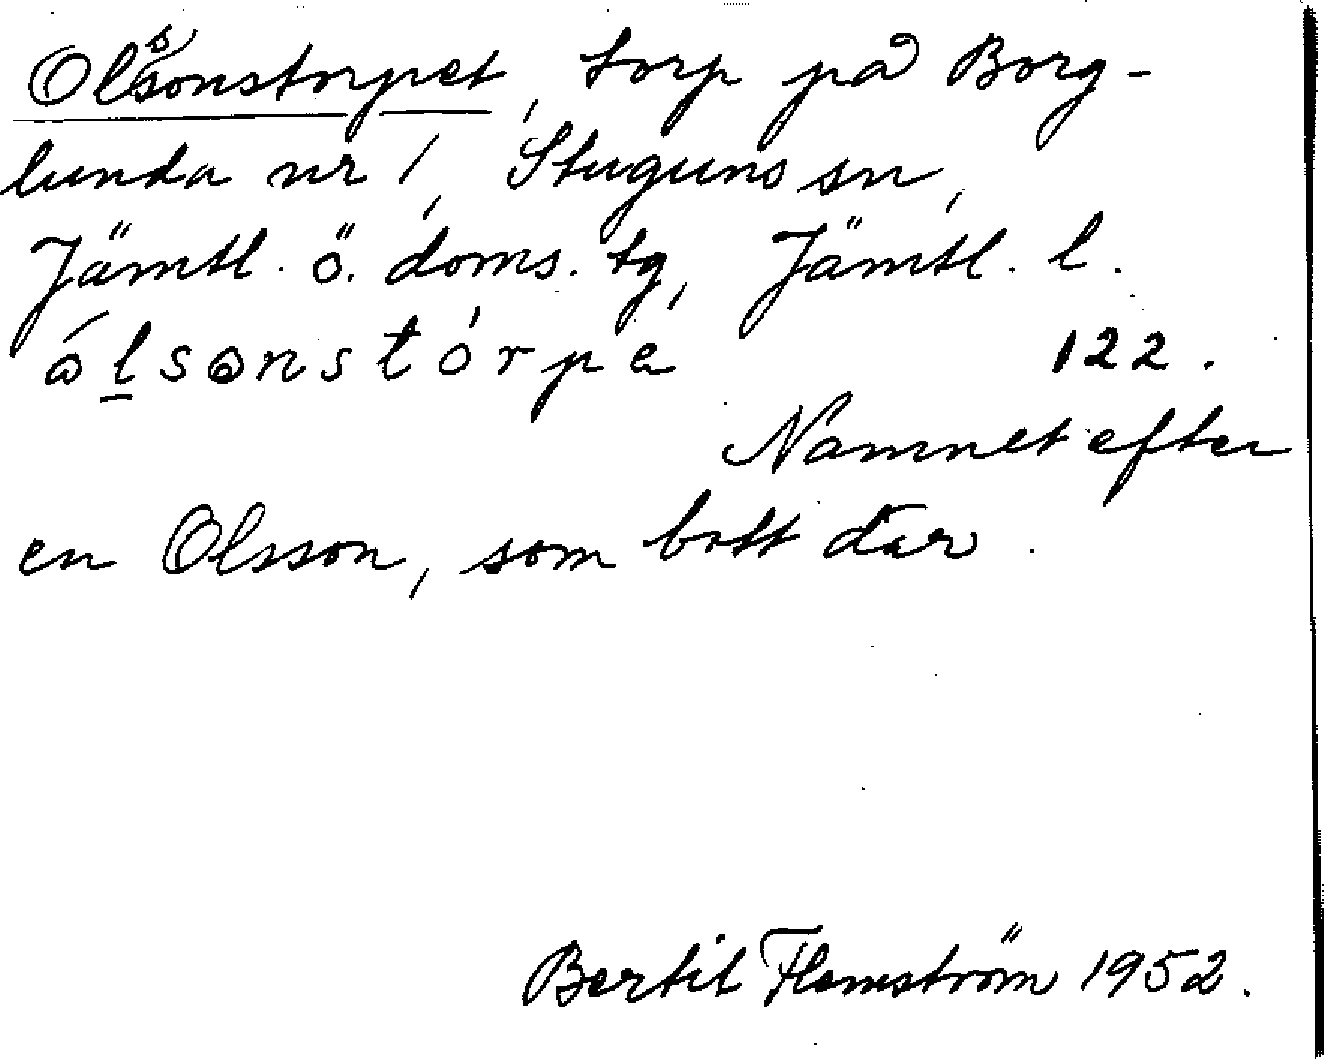 Olssonstorpet, torp på Borg-
lunda nr 1, Stuguns sn,
Jämtl. ö. doms. tg, Jämtl. l.
ólsonstórpe 122.
Namnet efter
en Olsson, som bott där.
Bertil Flemström 1952.